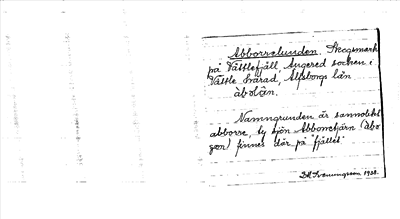 Abborrelunden. Skogsmark
på Vättlefjäll Angered socken i
Vättle härad, Älfsborgs län
àbolùn.
Namngrunden är sannolikt
abborre, ty sjön Abborretjärn (àbo
) finnes där på "fjället".
1938.